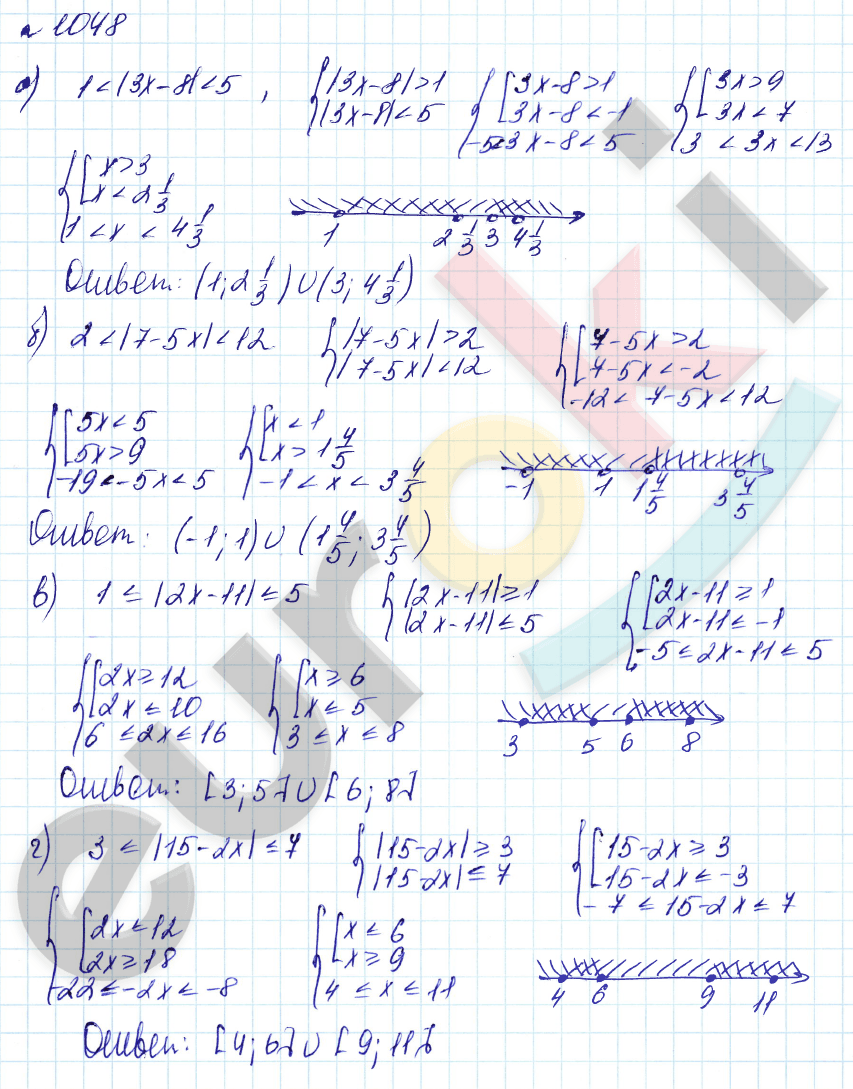 № 1048
а) 1 < |3x-8| < 5 , { |3x-8| > 1 { [ 3x-8 > 1 { [ 3x > 9
|3x-8| < 5 3x-8 < -1 3x < 7
-5 < 3x-8 < 5 3 < 3x < 13
{ [ x > 3
x < 2 1/3
1 < x < 4 1/3
1 2 1/3 3 4 1/3
Ответ: (1; 2 1/3) ∪ (3; 4 1/3)
б) 2 < |7-5x| < 12 { |7-5x| > 2 { [ 7-5x > 2
|7-5x| < 12 7-5x < -2
-12 < 7-5x < 12
{ [ 5x < 5 { [ x < 1
5x > 9 x > 1 4/5
-19 < -5x < 5 -1 < x < 3 4/5
-1 1 1 4/5 3 4/5
Ответ: (-1; 1) ∪ (1 4/5; 3 4/5)
в) 1 ≤ |2x-11| ≤ 5 { |2x-11| ≥ 1 { [ 2x-11 ≥ 1
|2x-11| ≤ 5 2x-11 ≤ -1
-5 ≤ 2x-11 ≤ 5
{ [ 2x ≥ 12 { [ x ≥ 6
2x ≤ 10 x ≤ 5
6 ≤ 2x ≤ 16 3 ≤ x ≤ 8
3 5 6 8
Ответ: [3; 5] ∪ [6; 8]
г) 3 ≤ |15-2x| ≤ 7 { |15-2x| ≥ 3 { [ 15-2x ≥ 3
|15-2x| ≤ 7 15-2x ≤ -3
-7 ≤ 15-2x ≤ 7
{ [ 2x ≤ 12 { [ x ≤ 6
2x ≥ 18 x ≥ 9
-22 ≤ -2x ≤ -8 4 ≤ x ≤ 11
4 6 9 11
Ответ: [4; 6] ∪ [9; 11]
euroki